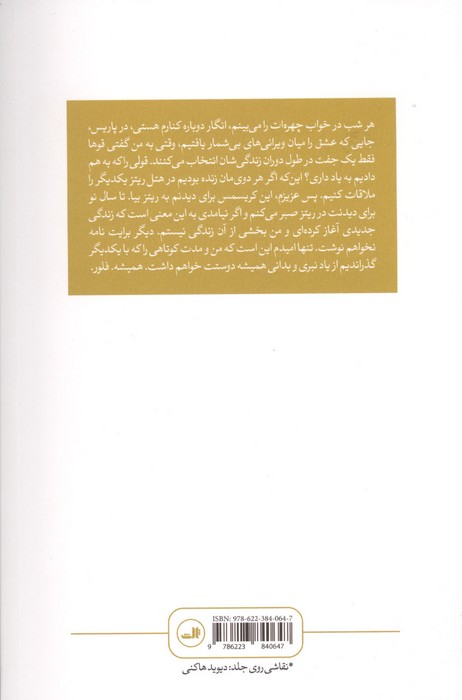 هر شب در خواب چهره‌ات را می‌بینم، انگار دوباره کنارم هستی، در پاریس،
جایی که عشق را میان ویرانی‌های بی‌شمار یافتیم، وقتی به من گفتی قوها
فقط یک جفت در طول دوران زندگی‌شان انتخاب می‌کنند. قولی را که به هم
دادیم به یاد داری؟ این‌که اگر هر دوی‌مان زنده بودیم در هتل ریتز یکدیگر را
ملاقات کنیم، پس عزیزم، این کریسمس برای دیدنم به ریتز بیا. تا سال نو
برای دیدنت در ریتز صبر می‌کنم و اگر نیامدی به این معنی است که زندگی
جدیدی آغاز کرده‌ای و من بخشی از آن زندگی نیستم. دیگر برایت نامه
نخواهم نوشت. تنها امیدم این است که من و مدت کوتاهی را که با یکدیگر
گذراندیم از یاد نبری و بدانی همیشه دوستت خواهم داشت. همیشه. فلور.
ISBN: 978-622-384-064-7
9 786223 840647
ثالث
*نقاشی روی جلد: دیوید هاکنی